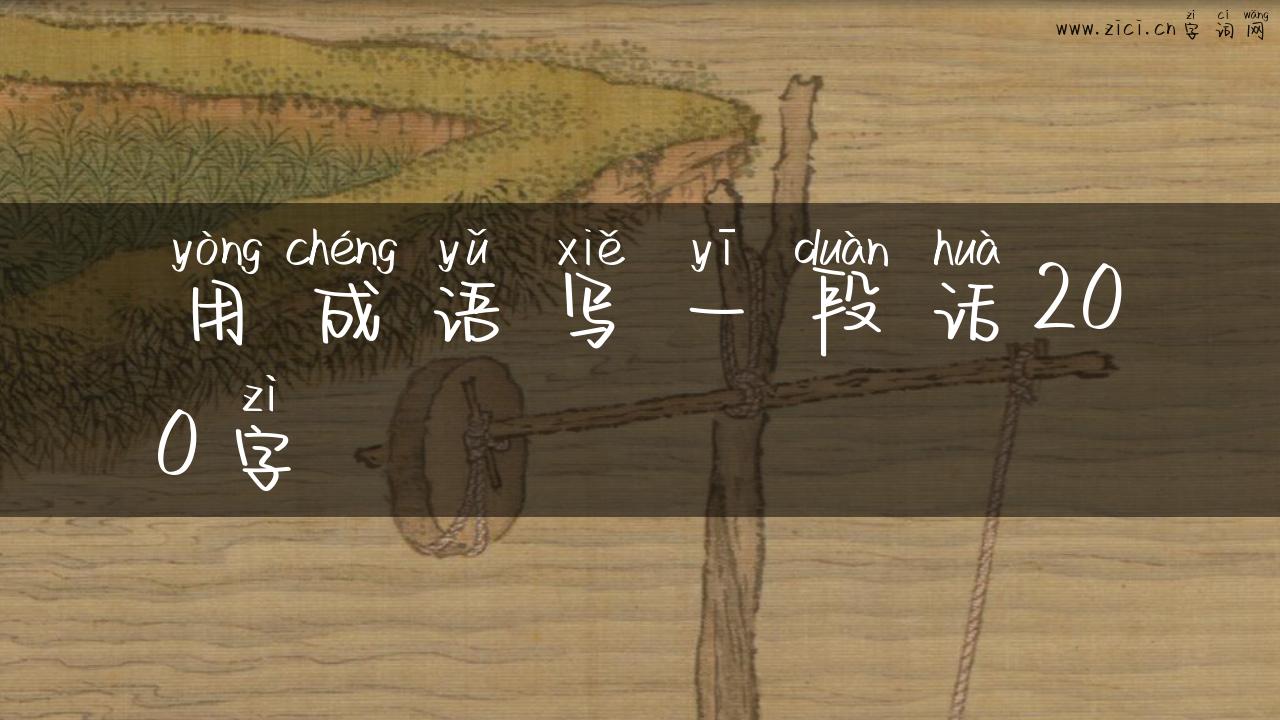 www.zici.cn 字词网
zì cí wǎng
yòng chéng yǔ xiě yī duàn huà
用成语写一段话20
zì
0字